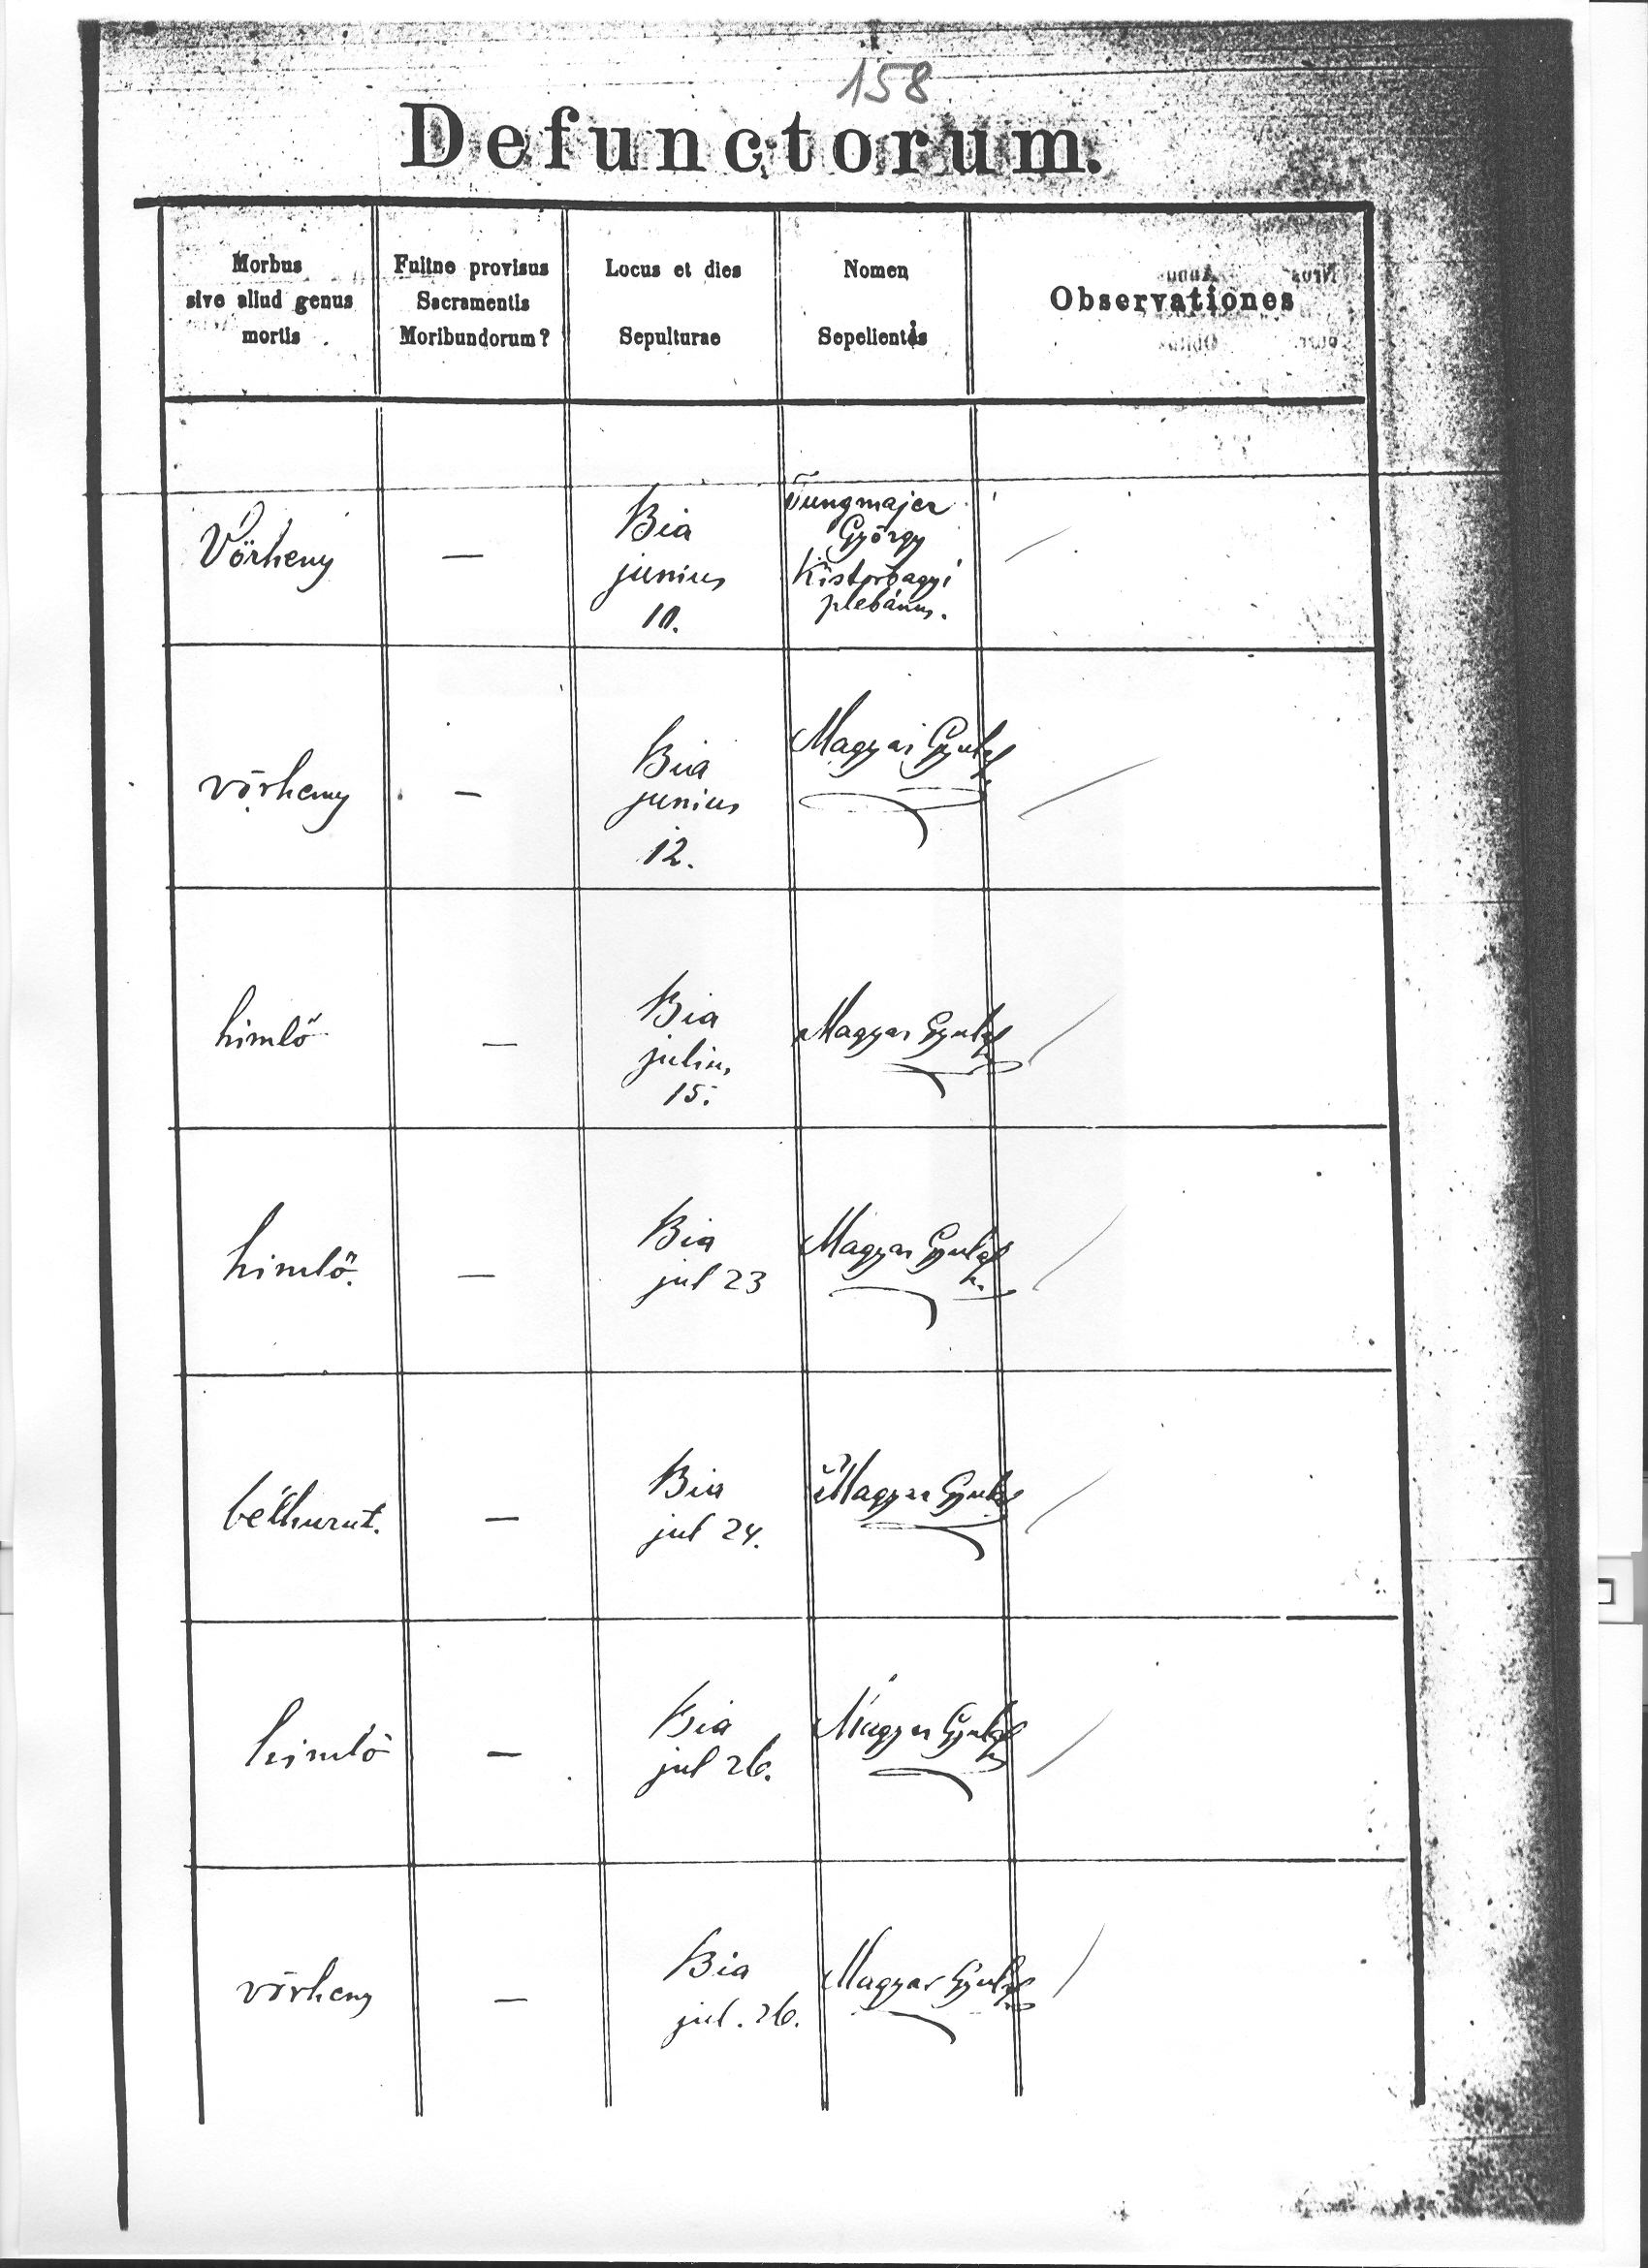 158
Defunctorum.
Morbus
sive aliud genus
mortis
Fuitne provisus
Sacramentis
Moribundorum?
Locus et dies
Sepulturae
Nomen
Sepelientis
Observationes
Vörheny
—
Bia
junius
10.
Jungmajer
György
Kistorbagyi
plebánus.
vörheny
—
Bia
junius
12.
Magyar Gyula
himlő
—
Bia
julius
15.
Magyar Gyula
himlő.
—
Bia
jul 23
Magyar Gyula
bélhurut.
—
Bia
jul 24.
Magyar Gyula
himlő
—
Bia
jul 26.
Magyar Gyula
vörheny
—
Bia
jul. 26.
Magyar Gyula